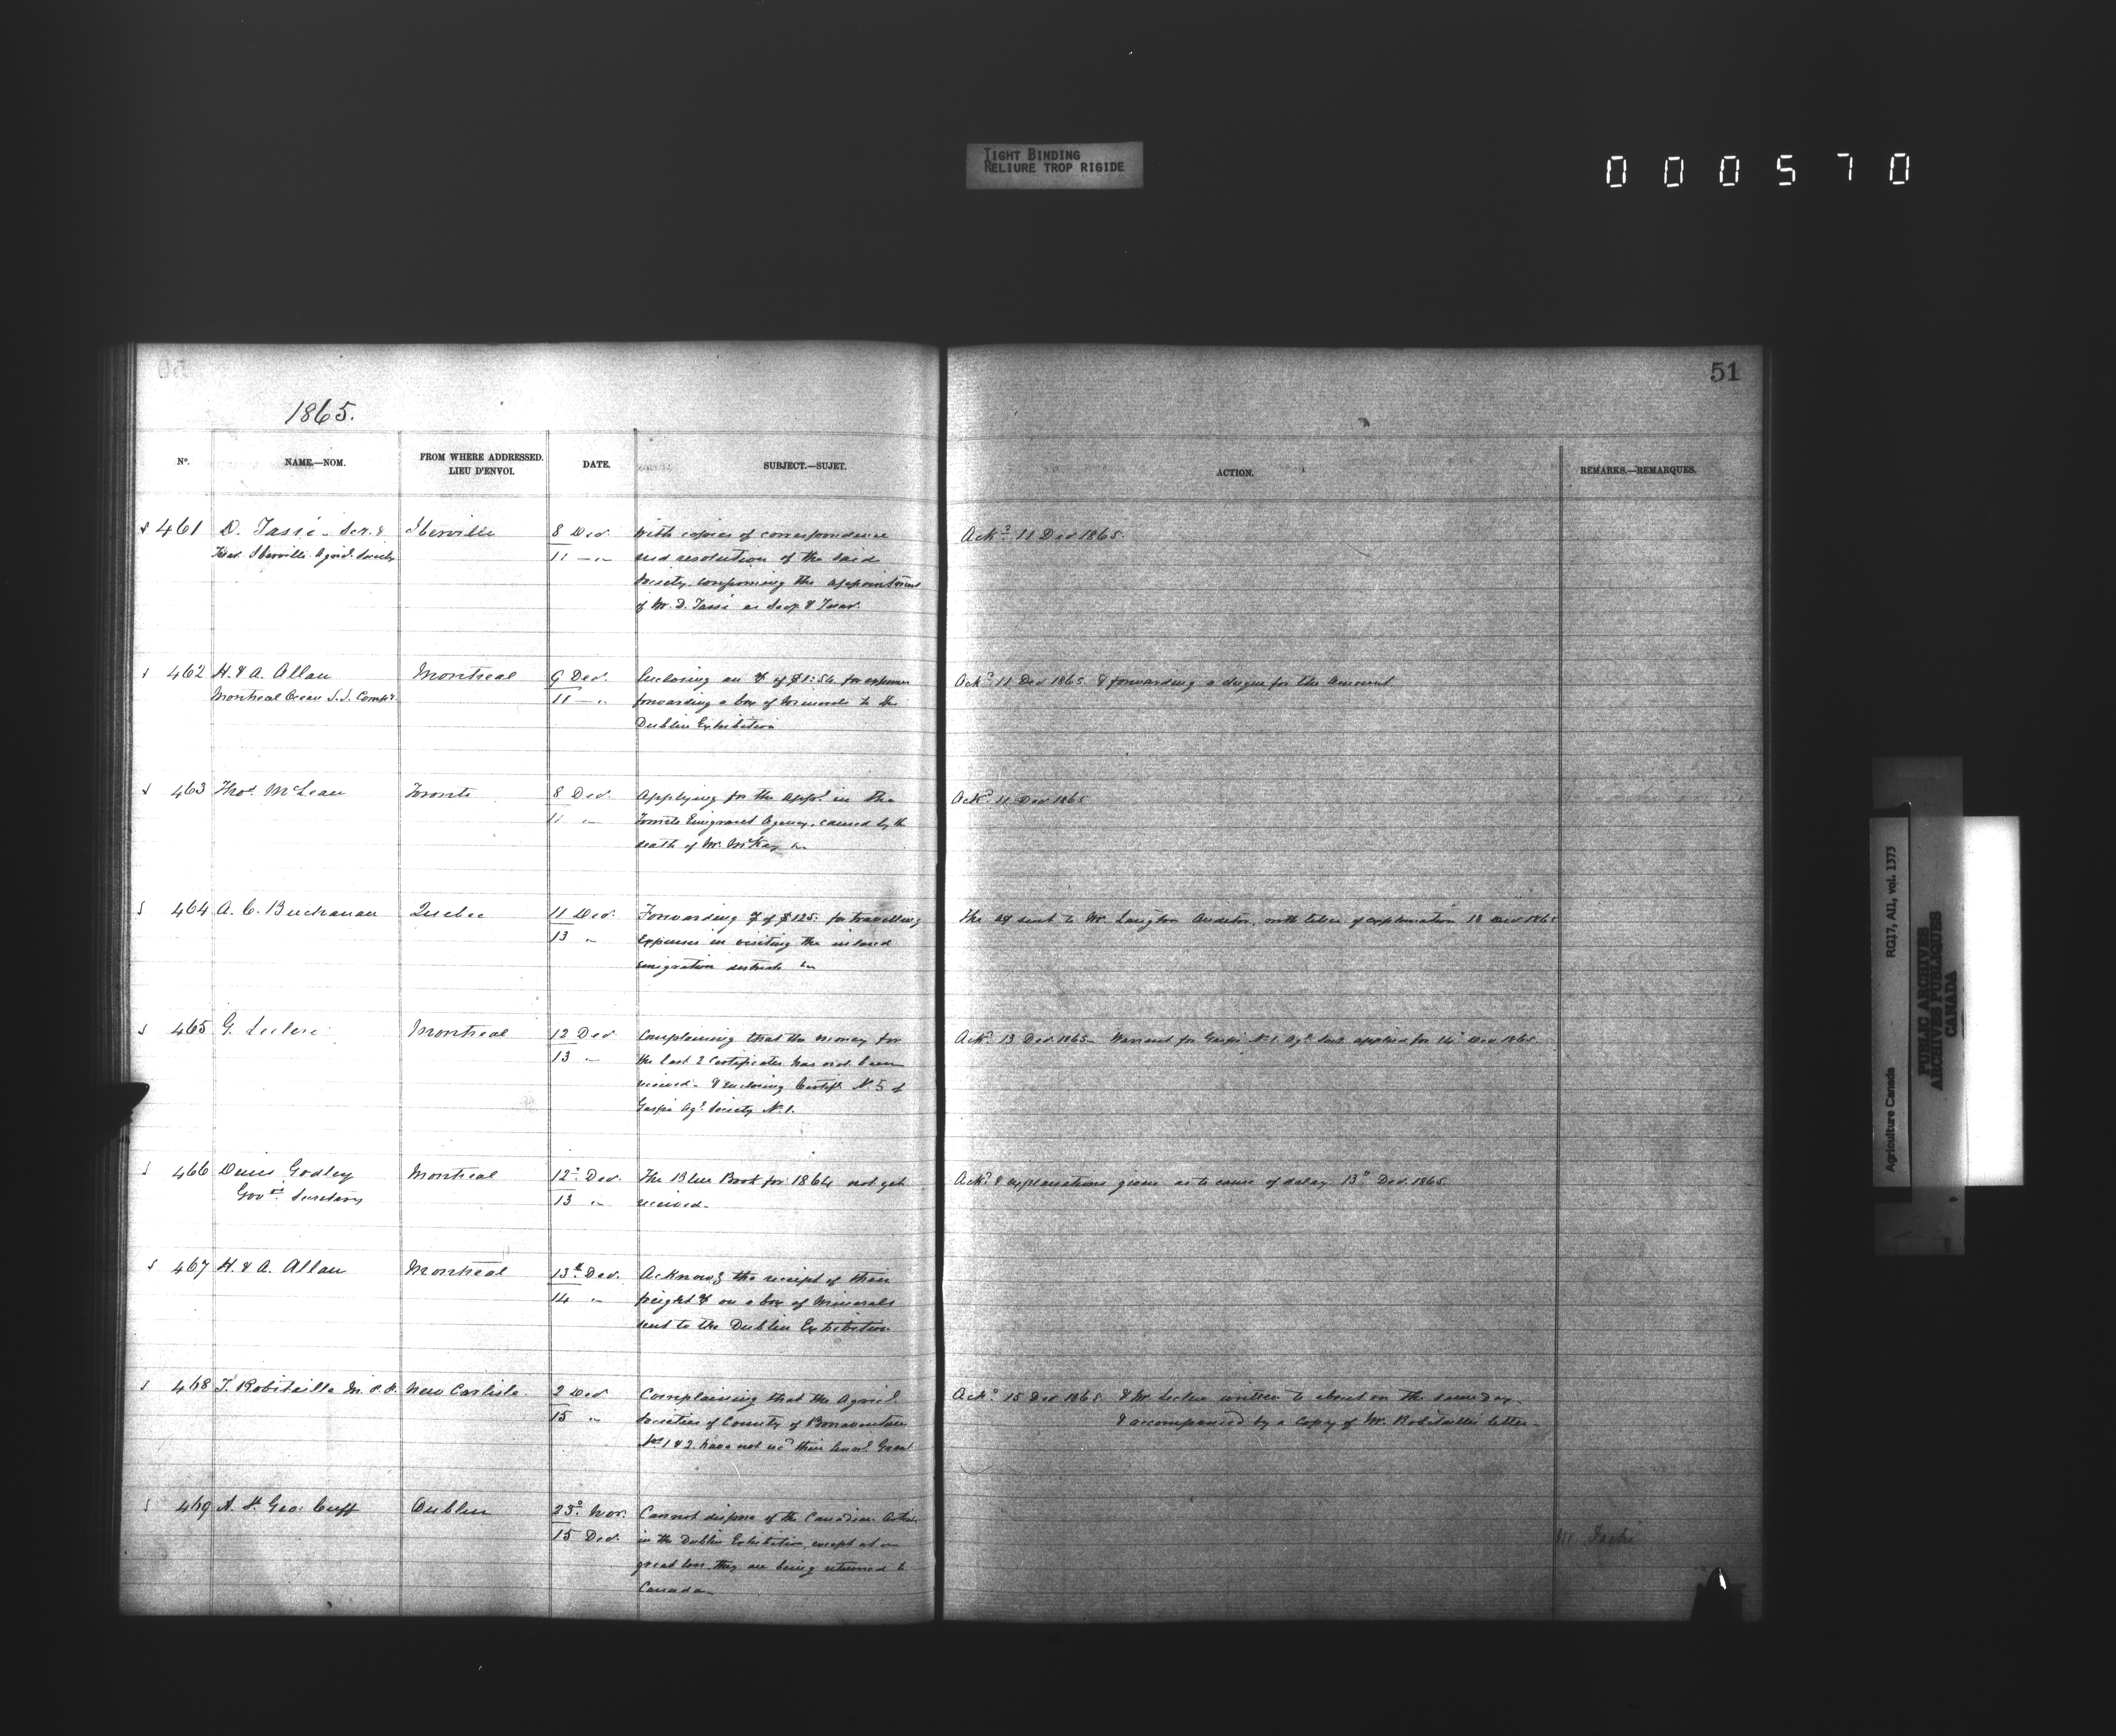 TIGHT BINDING
RELIURE TROP RIGIDE
000570
51
1865.
No. NAME.—NOM. FROM WHERE ADDRESSED. LIEU D'ENVOI. DATE. SUBJECT.—SUJET. ACTION. REMARKS.—REMARQUES.
461 D. Tassé Iberville 8 Dec. With copies of correspondence Ackd 11 Dec 1865.
Iberville Society 11 and resolution of the said
Society the appointment
of Mr. D. Tassé as Secy. &
462 H. & A. Allan Montreal 9 Dec. Enclosing an of $1:54 for expenses Ackd 11 Dec 1865 & forwarding a cheque for the amount
Montreal Ocean S.S. 11 forwarding a box of minerals to the
Dublin Exhibition
463 Thos. McLean Toronto 8 Dec. Applying for the appt. in the Ackd. 11 Dec 1865
11 " Toronto Emigrant Agency, caused by the
death of Mr. McKay
464 A. C. Buchanan Quebec 11 Dec. Forwarding of $125. for travelling The sent to Mr. Langton Auditor, with letter of explanation 13 Dec 1865
13 " expenses in visiting the inland
emigration districts
465 G. Leclerc Montreal 12 Dec Complaining that the money for Ackd. 13 Dec. 1865 Warrant for Gaspé No. 1. applied for 14 Dec 1865.
13 " the last 2 Certificates has not been
received. & enclosing Certif. N. 5 of
Gaspé Agl. Society N. 1.
466 Denis Godley Montreal 12 Dec. The Blue Book for 1864 not yet Ackd. & explanations given as to cause of delay 13 Dec. 1865.
Secretary 13 " received.
467 H. & A. Allan Montreal 13 Dec. the receipt of their
14 " freight on a box of Minerals
sent to the Dublin Exhibition
468 T. Robitaille M.P.P. New Carlisle 2 Dec Complaining that the Agricl. Ackd 15 Dec 1865. & Mr. Leclerc written to about on the same day
15 " Societies of County of Bonaventure & accompanied by a copy of Mr. Robitaille's letter.
Nos 1 & 2. have not recd their Grant
469 St. Geo. Cuff Dublin 25 Nov. Cannot dispose of the Canadian
15 Dec. in the Dublin Exhibition, except at a
great loss they are being returned to
Canada
Agriculture Canada RG17, AII, vol. 1373
PUBLIC ARCHIVES
ARCHIVES PUBLIQUES
CANADA